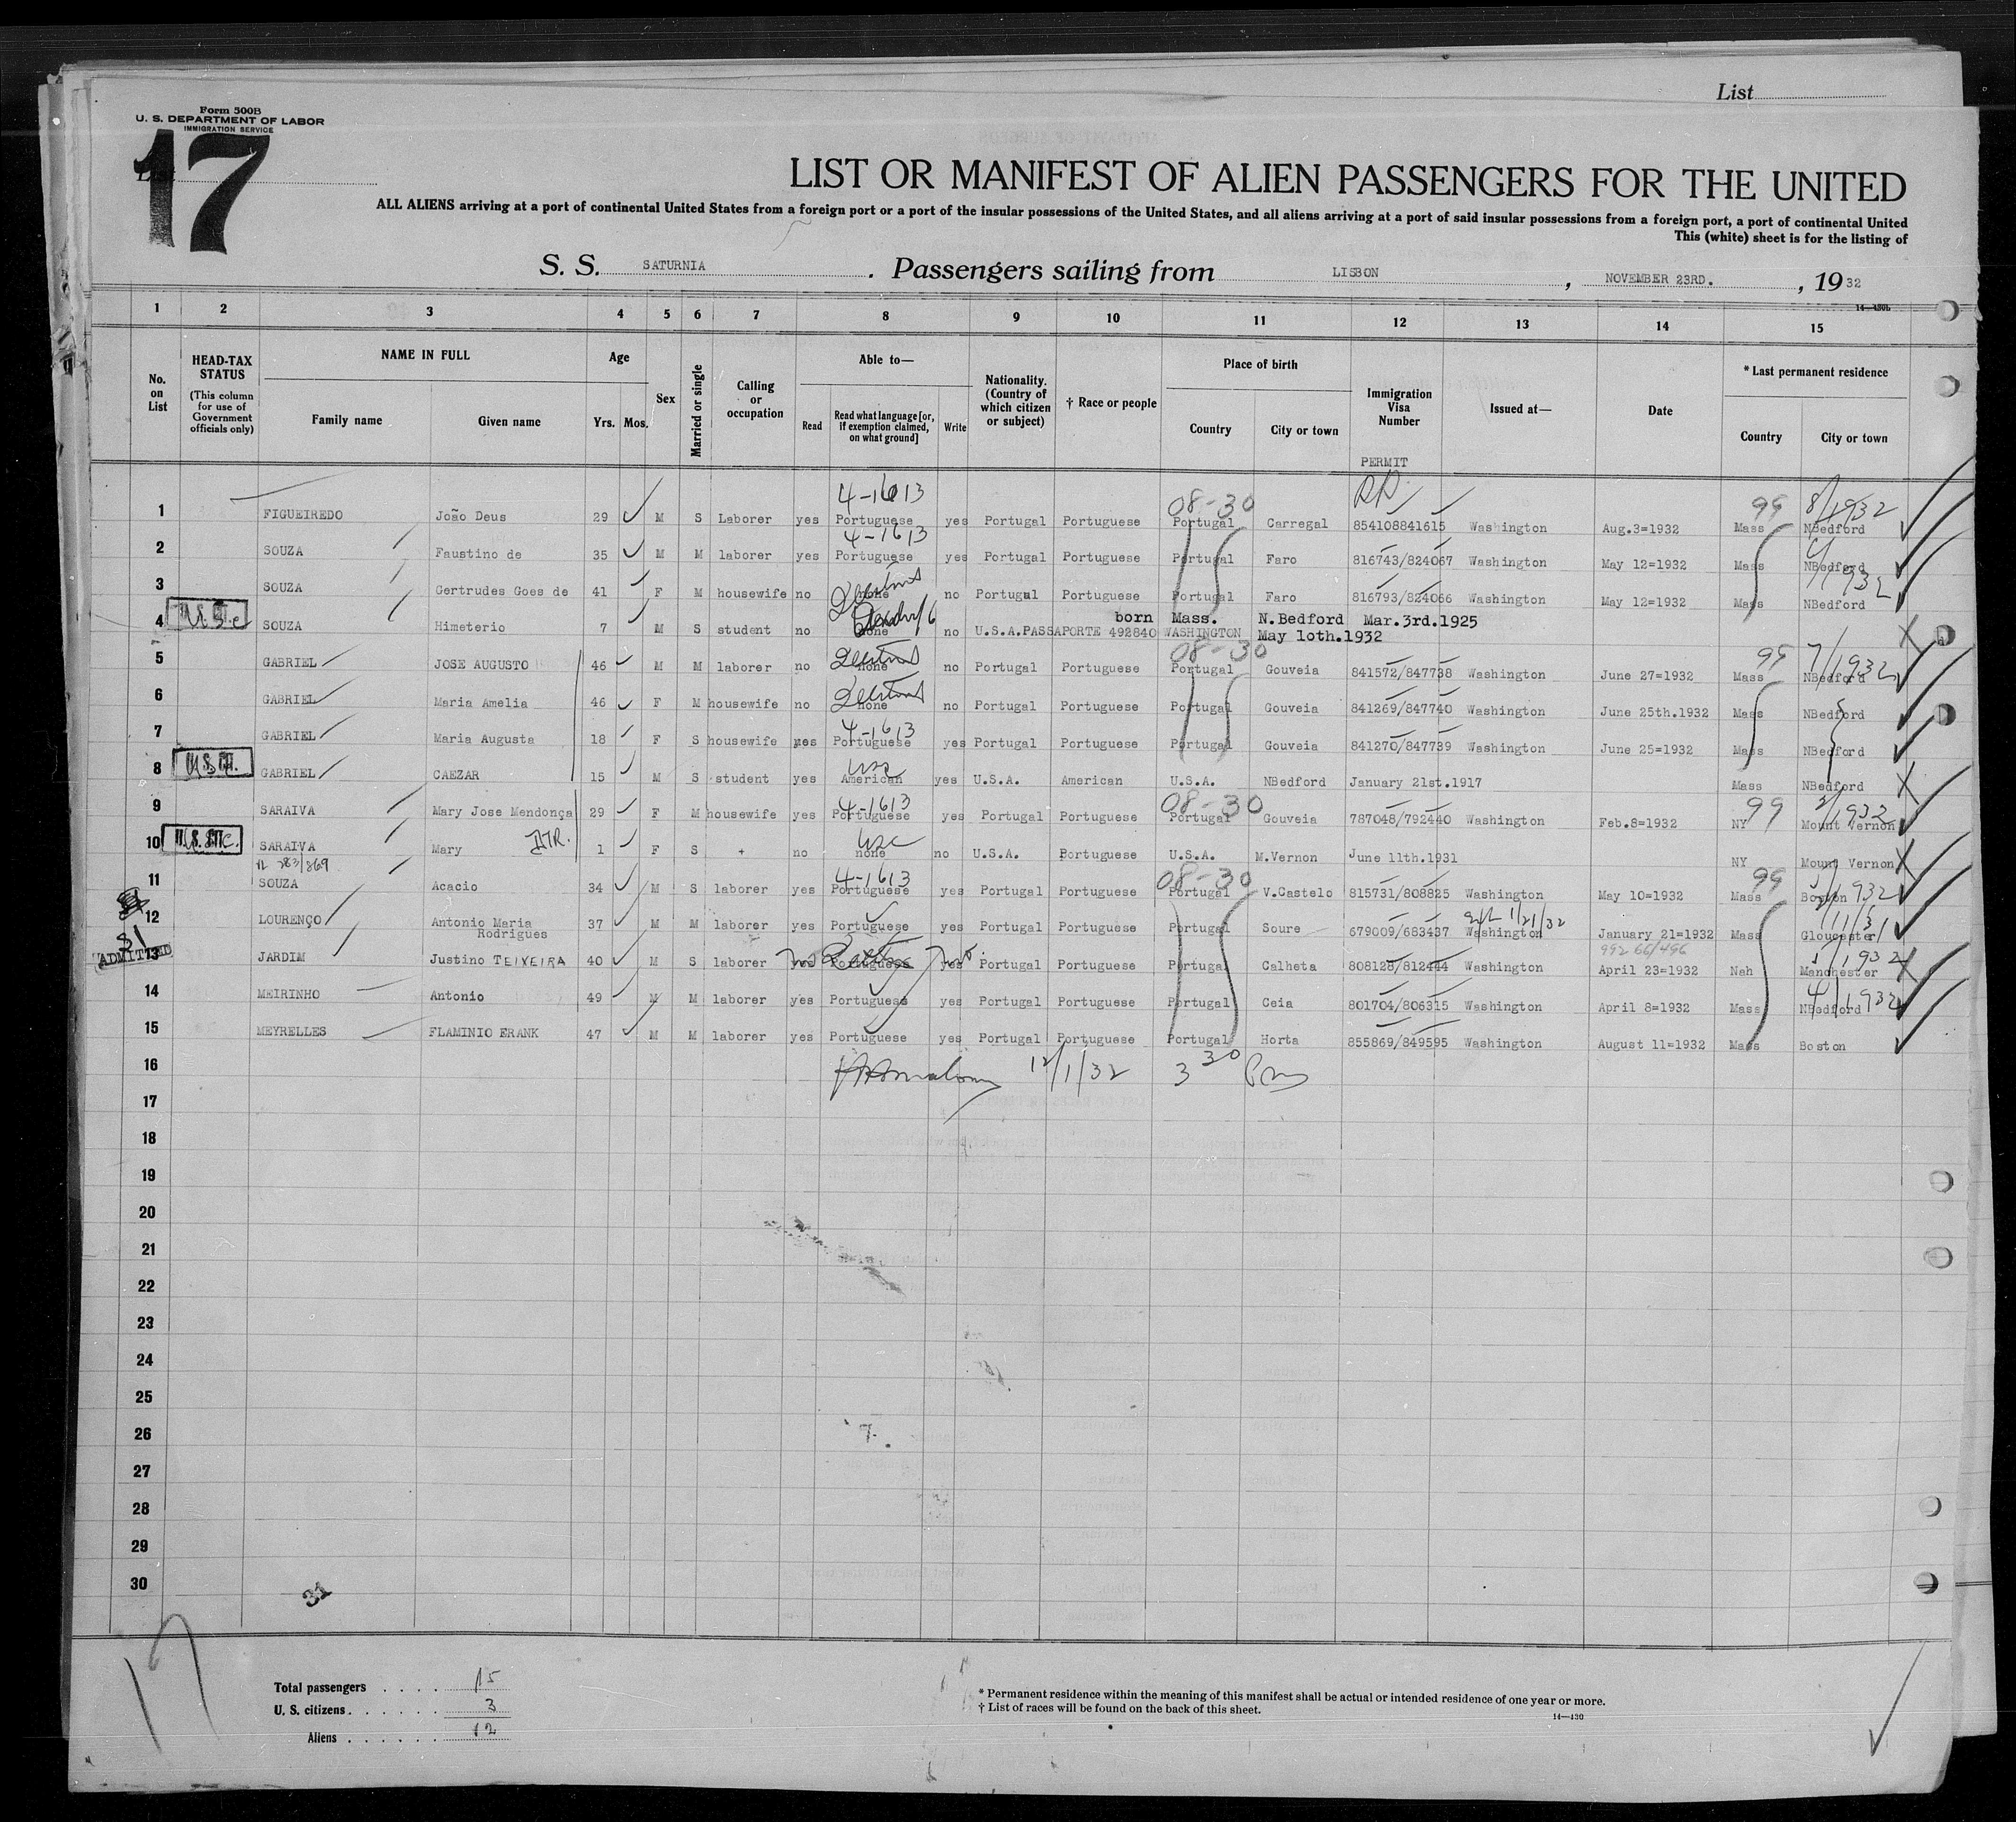 List
Form 500B
U. S. DEPARTMENT OF LABOR
IMMIGRATION SERVICE
List 17
LIST OR MANIFEST OF ALIEN PASSENGERS FOR THE UNITED
ALL ALIENS arriving at a port of continental United States from a foreign port or a port of the insular possessions of the United States, and all aliens arriving at a port of said insular possessions from a foreign port, a port of continental United
This (white) sheet is for the listing of
S. S. SATURNIA . Passengers sailing from LISBON , NOVEMBER 23RD. , 1932
14—430b
1 2 3 4 5 6 7 8 9 10 11 12 13 14 15
No. on List
HEAD-TAX STATUS (This column for use of Government officials only)
NAME IN FULL Family name Given name
Age Yrs. Mos.
Sex
Married or single
Calling or occupation
Able to— Read Read what language [or, if exemption claimed, on what ground] Write
Nationality. (Country of which citizen or subject)
† Race or people
Place of birth Country City or town
Immigration Visa Number
PERMIT
Issued at—
Date
* Last permanent residence Country City or town
4-1613 08-30 99 8/1932
1 FIGUEIREDO João Deus 29 M S Laborer yes Portuguese yes Portugal Portuguese Portugal Carregal 854108841615 Washington Aug.3=1932 Mass NBedford
4-1613
2 SOUZA Faustino de 35 M M laborer yes Portuguese yes Portugal Portuguese Portugal Faro 816743/824067 Washington May 12=1932 Mass NBedford
3 SOUZA Gertrudes Goes de 41 F M housewife no none no Portugal Portuguese Portugal Faro 816793/824066 Washington May 12=1932 Mass NBedford
born Mass. N.Bedford Mar.3rd.1925
4 SOUZA Himeterio 7 M S student no none no U.S.A.PASSAPORTE 492840 WASHINGTON May 1oth.1932
08-30 99 7/1932
5 GABRIEL JOSE AUGUSTO 46 M M laborer no none no Portugal Portuguese Portugal Gouveia 841572/847738 Washington June 27=1932 Mass NBedford
6 GABRIEL Maria Amelia 46 F M housewife no none no Portugal Portuguese Portugal Gouveia 841269/847740 Washington June 25th.1932 Mass NBedford
4-1613
7 GABRIEL Maria Augusta 18 F S housewife yes Portuguese yes Portugal Portuguese Portugal Gouveia 841270/847739 Washington June 25=1932 Mass NBedford
usc
8 GABRIEL CAEZAR 15 M S student yes American yes U.S.A. American U.S.A. NBedford January 21st.1917 Mass NBedford
4-1613 08-30 99 2/1932
9 SARAIVA Mary Jose Mendonça 29 F M housewife yes Portuguese yes Portugal Portuguese Portugal Gouveia 787048/792440 Washington Feb.8=1932 NY Mount Vernon
usc
10 SARAIVA Mary 1 F S + no none no U.S.A. Portuguese U.S.A. M.Vernon June 11th.1931 NY Mount Vernon
4-1613 08-30 99
11 SOUZA Acacio 34 M S laborer yes Portuguese yes Portugal Portuguese Portugal V.Castelo 815731/808825 Washington May 10=1932 Mass Boston
1/21/32
12 LOURENÇO Antonio Maria Rodrigues 37 M M laborer yes Portuguese yes Portugal Portuguese Portugal Soure 679009/683437 Washington January 21=1932 Mass Gloucester
ADMITTED
13 JARDIM Justino TEIXEIRA 40 M S laborer yes Portuguese yes Portugal Portuguese Portugal Calheta 808128/812444 Washington April 23=1932 Nah Manchester
4/1932
14 MEIRINHO Antonio 49 M M laborer yes Portuguese yes Portugal Portuguese Portugal Ceia 801704/806315 Washington April 8=1932 Mass NBedford
15 MEYRELLES FLAMINIO FRANK 47 M M laborer yes Portuguese yes Portugal Portuguese Portugal Horta 855869/849595 Washington August 11=1932 Mass Boston
16 12/1/32 3 30 Pm
17
18
19
20
21
22
23
24
25
26
27
28
29
30
31
17
Total passengers . . . . 15
U. S. citizens . . . . . . 3
Aliens . . . . . . 12
* Permanent residence within the meaning of this manifest shall be actual or intended residence of one year or more.
† List of races will be found on the back of this sheet.
14—430